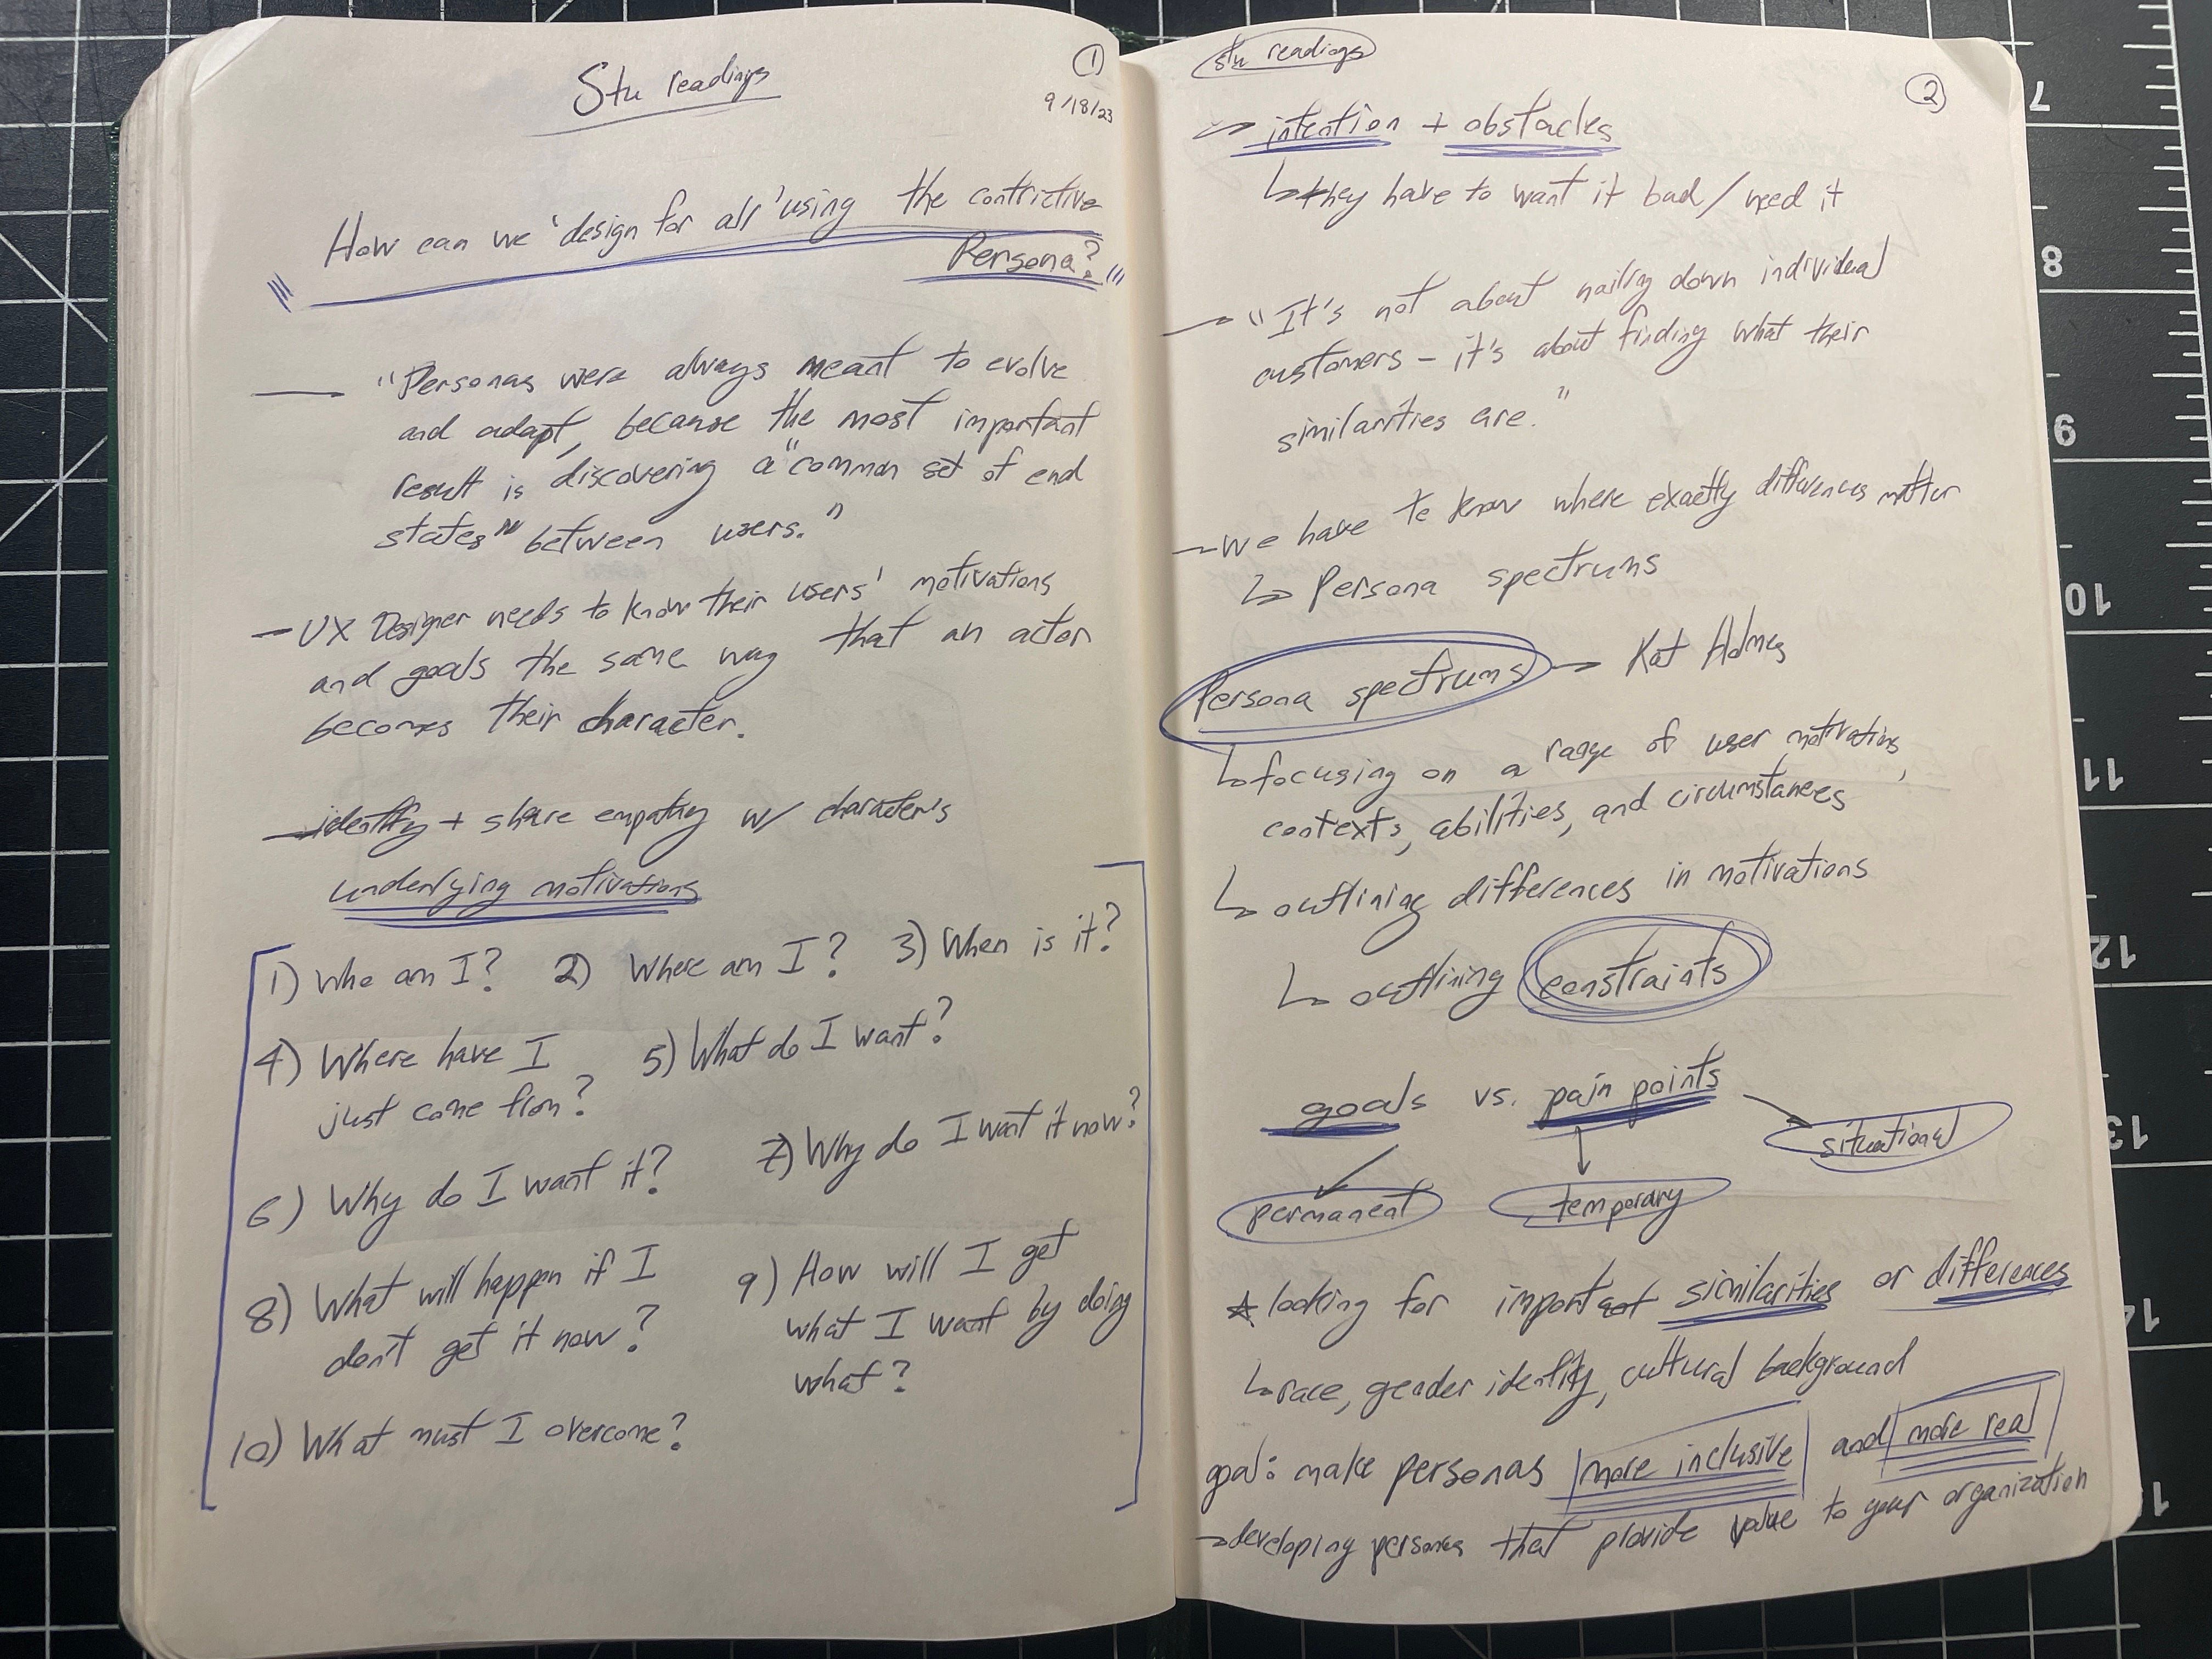 Stu readings
1
9/18/23
"How can we 'design for all' using the contrictive
Persona?"
— "Personas were always meant to evolve
and adapt, because the most important
result is discovering a "common set of end
states" between users."
— UX Designer needs to know their users' motivations
and goals the same way that an actor
becomes their character.
— identify + share empathy w/ character's
underlying motivations
1) Who am I? 2) Where am I? 3) When is it?
4) Where have I
just come from?
5) What do I want?
6) Why do I want it?
7) Why do I want it now?
8) What will happen if I
don't get it now?
9) How will I get
what I want by doing
what?
10) What must I overcome?
stu readings
2
→ intention + obstacles
↳ they have to want it bad / need it
— "It's not about nailing down individual
customers – it's about finding what their
similarities are."
— we have to know where exactly differences matter
↳ Persona spectrums
Persona spectrums → Kat Holmes
↳ focusing on a range of user motivations,
contexts, abilities, and circumstances
↳ outlining differences in motivations
↳ outlining constraints
goals vs. pain points
situational
permanent temporary
☆ looking for important similarities or differences
↳ race, gender identity, cultural background
goal: make personas more inclusive and more real
→ developing personas that provide value to your organization
7
8
9
10
11
12
13
14
1